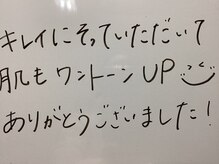 キレイにそっていただいて
肌もワントーンUP
ありがとうございました!